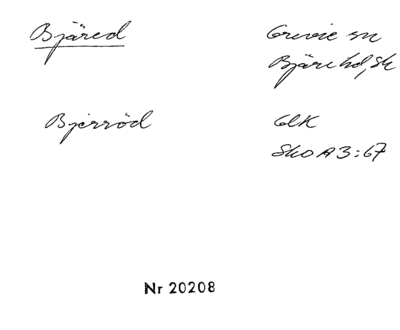 Bjäred
Grevie sn
Bjäre hd, Sk
Bjerröd
GLK
Sko A3:67
Nr 20208